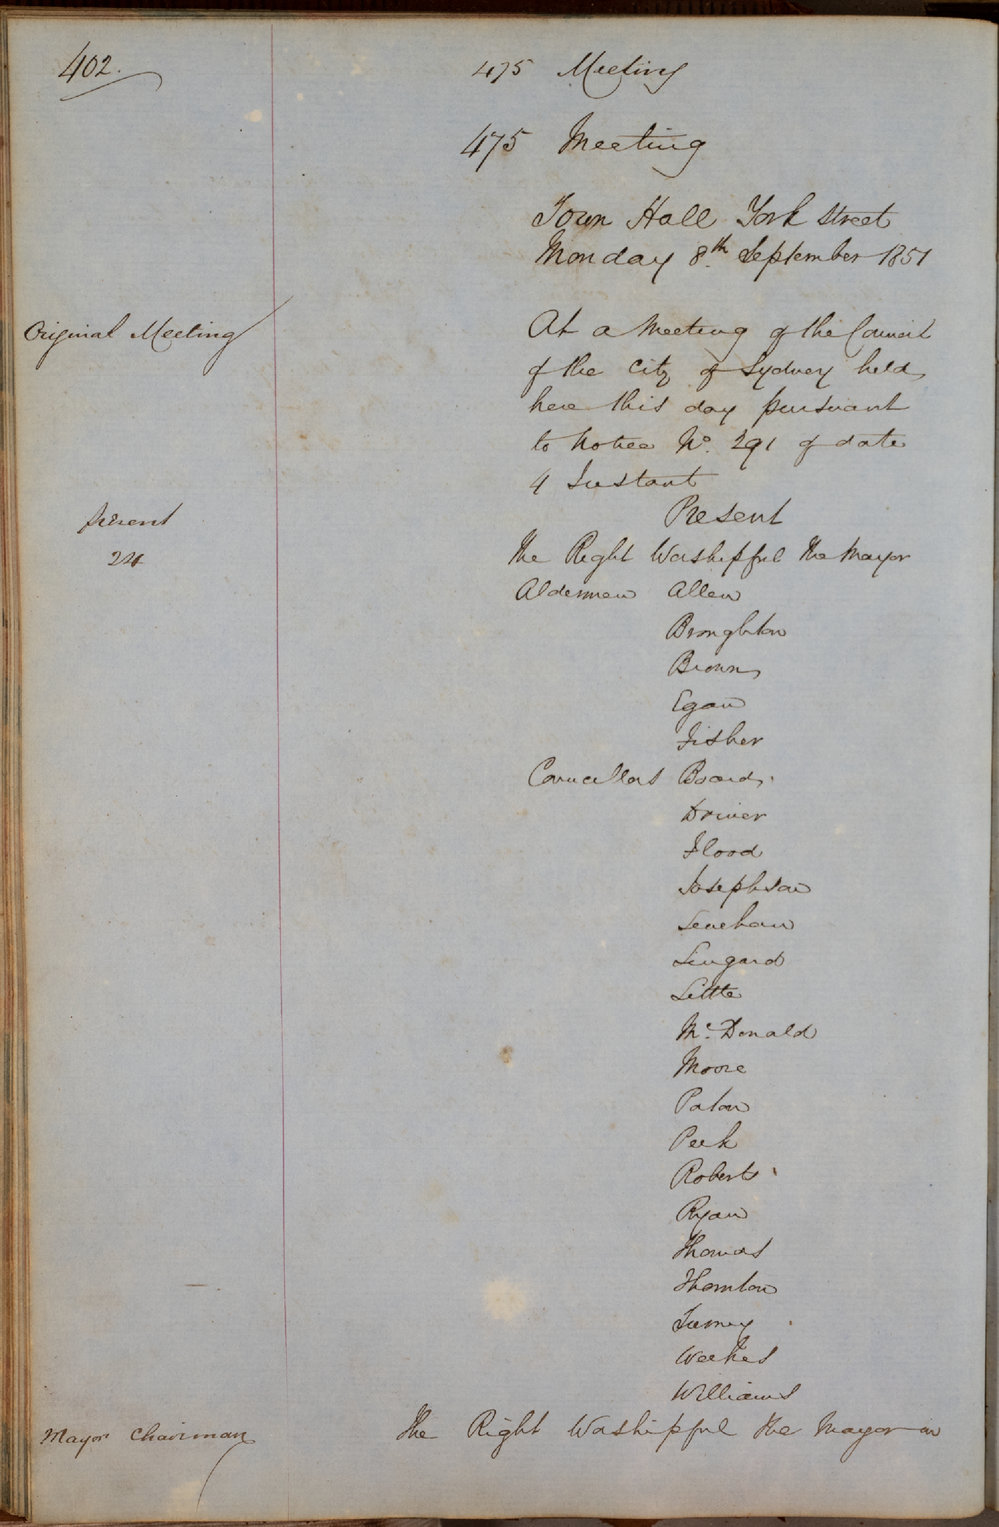 402.
475 Meeting
475 Meeting
Town Hall York Street
Monday 8th September 1851
Original Meeting
At a Meeting of the Council
of the City of Sydney held
here this day pursuant
to Notice No. 291 of date
4 Instant
Present
Present
24
The Right Worshipful The Mayor
Aldermen Allen
Broughton
Brown
Egan
Fisher
Councillors Board
Driver
Flood
Josephson
Lenehan
Lingard
Little
McDonald
Moore
Paton
Peek
Roberts
Ryan
Thomas
Thornton
Weekes
Williams
Mayor Chairman
The Right Worshipful the Mayor in